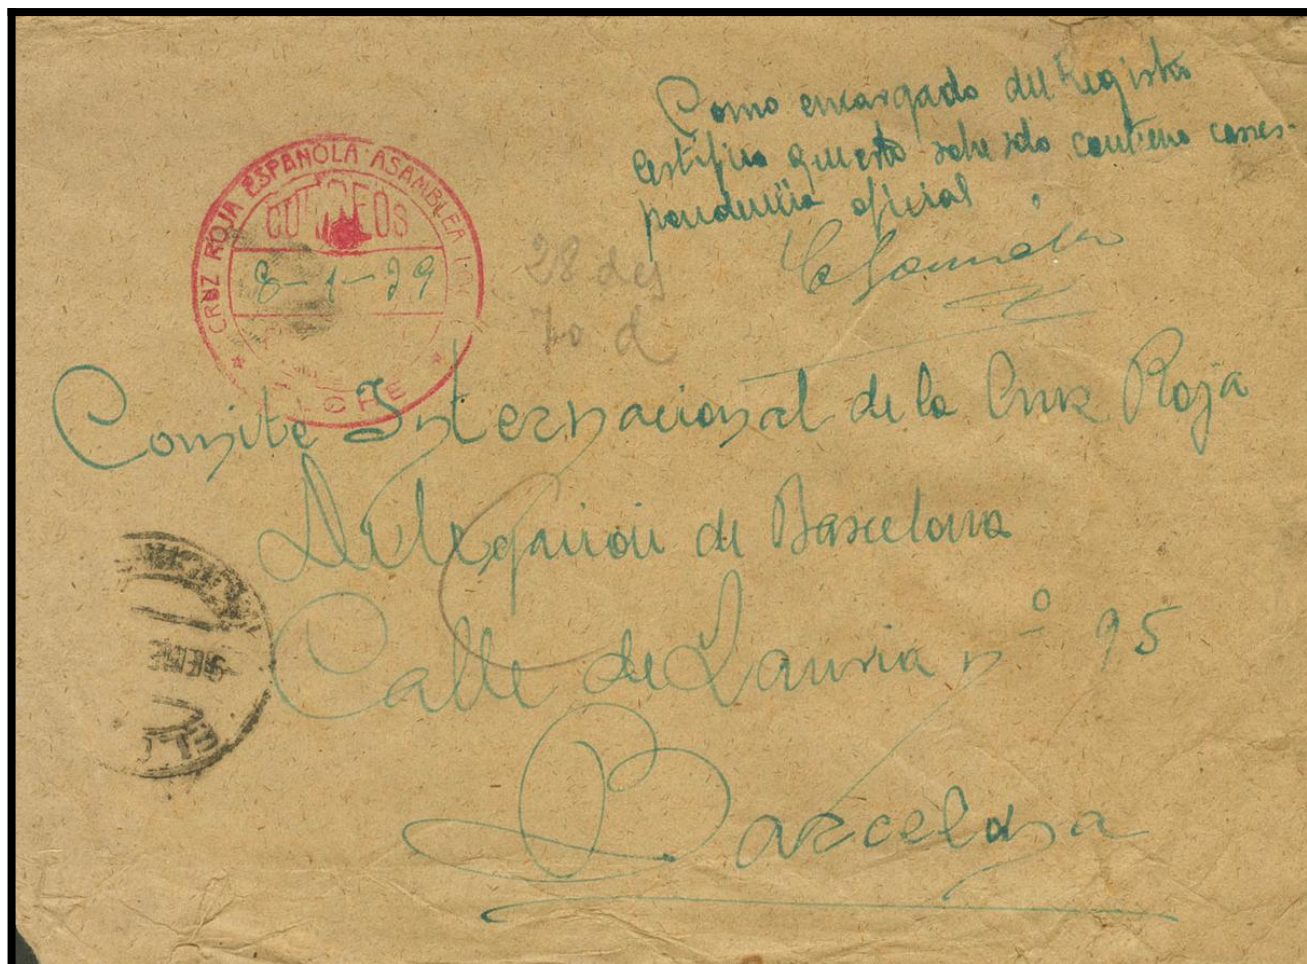 Como encargado del Registro
certifico que este sobre solo contiene corres-
pondencia oficial
CRUZ ROJA ESPAÑOLA·ASAMBLEA
CORREOS
8-1-39
28 des
Comité Internacional de la Cruz Roja
Delegación de Barcelona
Calle de Lauria nº 95
Barcelona